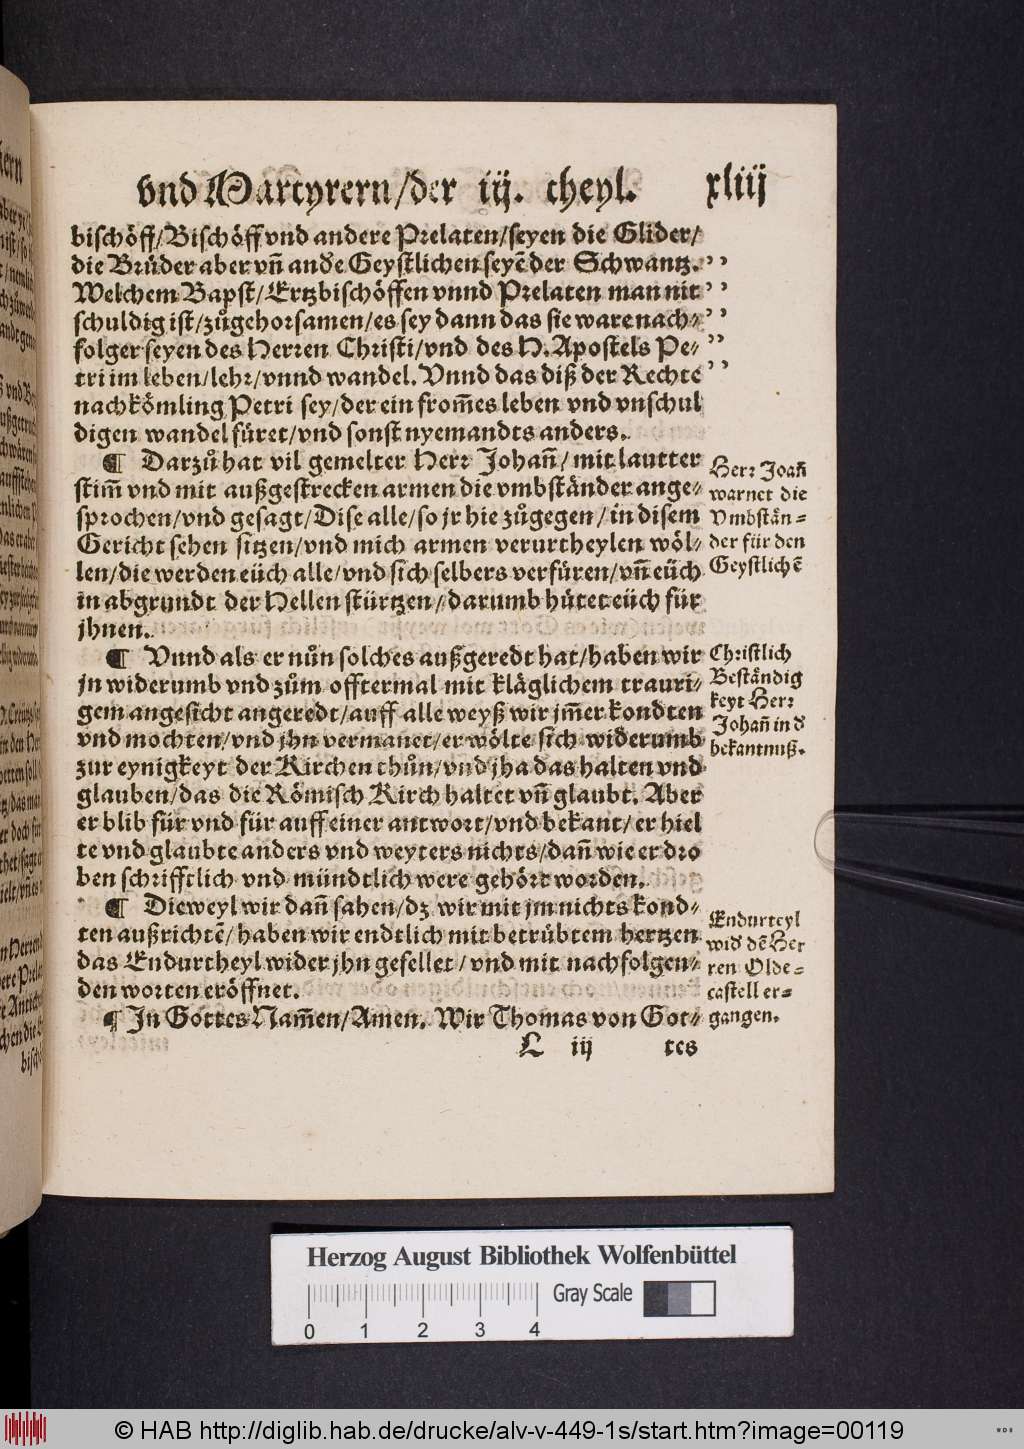 vnd Martyrern/der iij. theyl. xliij
bischöff/Bischöff vnd andere Prelaten/seyen die Glider/
die Brüder aber vñ and̕e Geystlichen seyẽ der Schwantz.
Welchem Bapst/Ertzbischöffen vnnd Prelaten man nit
schuldig ist/zůgehorsamen/es sey dann das sie ware nach-
folger seyen des Herren Christi/vnd des H. Apostels Pe-
tri im leben/lehr/vnnd wandel. Vnnd das diß der Rechte
nachkömling Petri sey/der ein from̃es leben vnd vnschul
digen wandel füret/vnd sonst nyemandts anders.
¶ Darzů hat vil gemelter Herr Johañ/mit lautter
stim̃ vnd mit außgestrecken armen die vmbständer ange-
sprochen/vnd gesagt/Dise alle/so jr hie zůgegen/in disem
Gericht sehen sitzen/vnd mich armen verurtheylen wöl-
len/die werden eüch alle/vnd sich selbers verfüren/vñ eüch
in abgrundt der Hellen stürtzen/darumb hütet eüch für
jhnen.
¶ Vnnd als er nůn solches außgeredt hat/haben wir
jn widerumb vnd zům offtermal mit kläglichem trauri-
gem angesicht angeredt/auff alle weyß wir jm̃er kondten
vnd mochten/vnd jhn vermanet/er wölte sich widerumb
zur eynigkeyt der Kirchen thůn/vnd jha das halten vnd
glauben/das die Römisch Kirch haltet vñ glaubt. Aber
er blib für vnd für auff einer antwort/vnd bekant/er hiel
te vnd glaubte anders vnd weyters nichts/dañ wie er dro
ben schrifftlich vnd mündtlich were gehört worden.
¶ Dieweyl wir dañ sahen/dz wir mit jm nichts kond-
ten außrichtẽ/haben wir endtlich mit betrübtem hertzen
das Endurtheyl wider jhn gefellet/vnd mit nachfolgen-
den worten eröffnet.
¶ In Gottes Nam̃en/Amen. Wir Thomas von Got-
L iij tes
Herr Joañ
warnet die
Vmbstän-
der für den
Geystlichẽ
Christlich
Beständig
keyt Herr
Johañ in d̕
bekantnuß.
Endurteyl
wid̕ dẽ Her
ren Olde-
castell er-
gangen.
Herzog August Bibliothek Wolfenbüttel
Gray Scale
0 1 2 3 4
© HAB http://diglib.hab.de/drucke/alv-v-449-1s/start.htm?image=00119